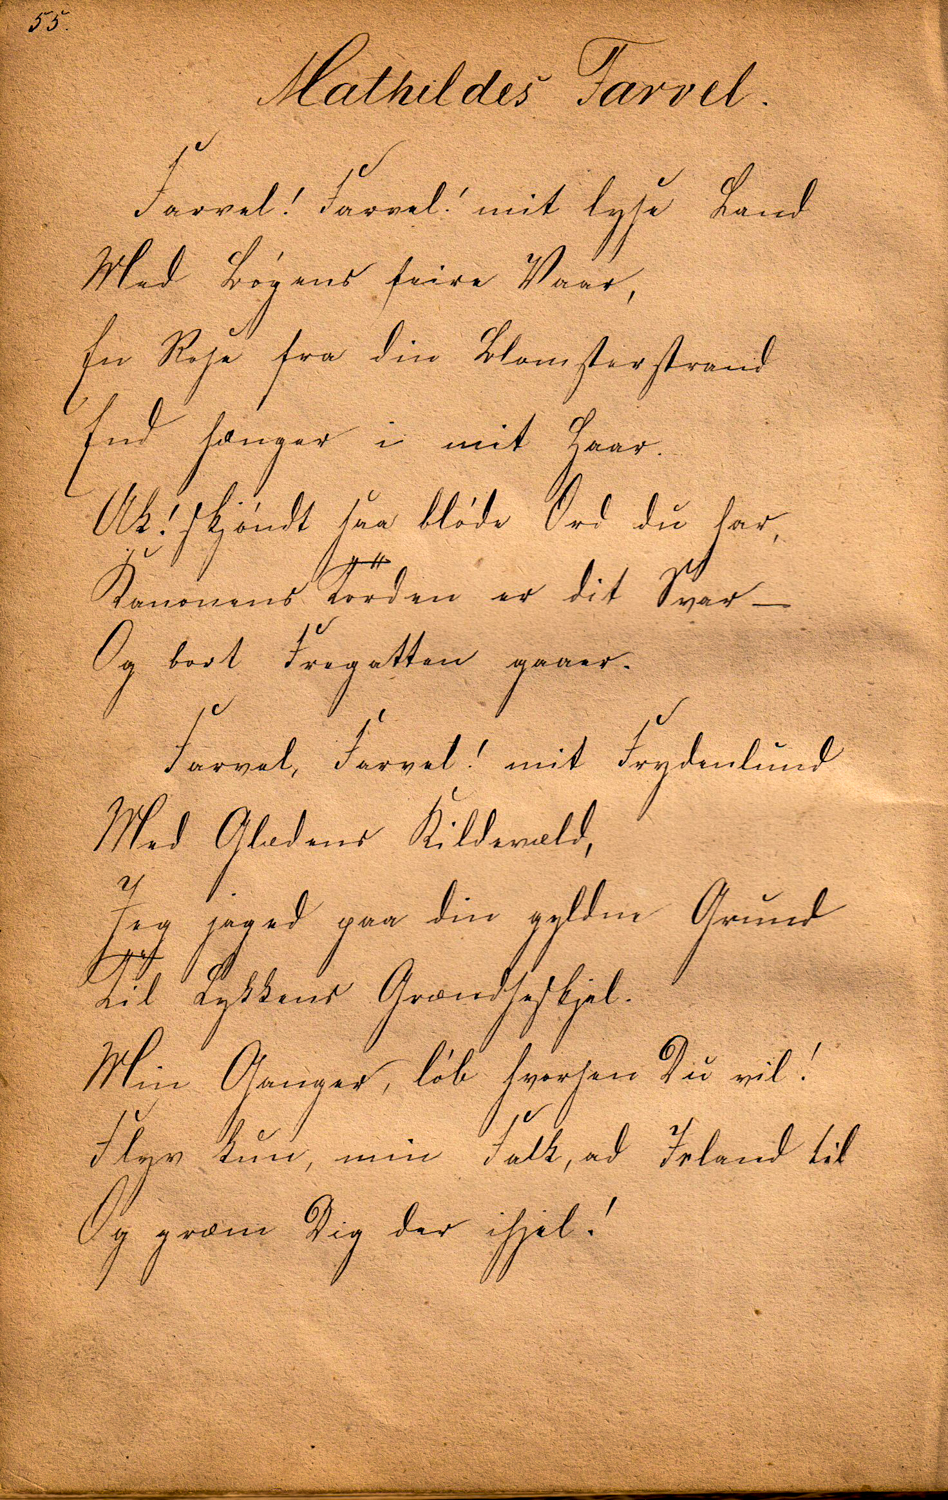 55.
Mathildes Farvel.
Farvel! Farvel! mit lyse Land
Med Bøgens feire Vaar,
En Rose fra din Blomsterstrand
End hænger i mit Haar.
Ak! skjøndt saa bløde Ord du har,
Kanonens Torden er dit Svar—
Og bort Fregatten gaaer.
Farvel, Farvel! mit Frydenlund
Med Glædens Kildevæld,
Jeg jaged paa din gyldne Grund
Til Lykkens Grændseskjel.
Min Ganger, løb hvorhen Du vil!
Flyv kun, min Falk, ad Irland til
Og græm Dig der ihjel!